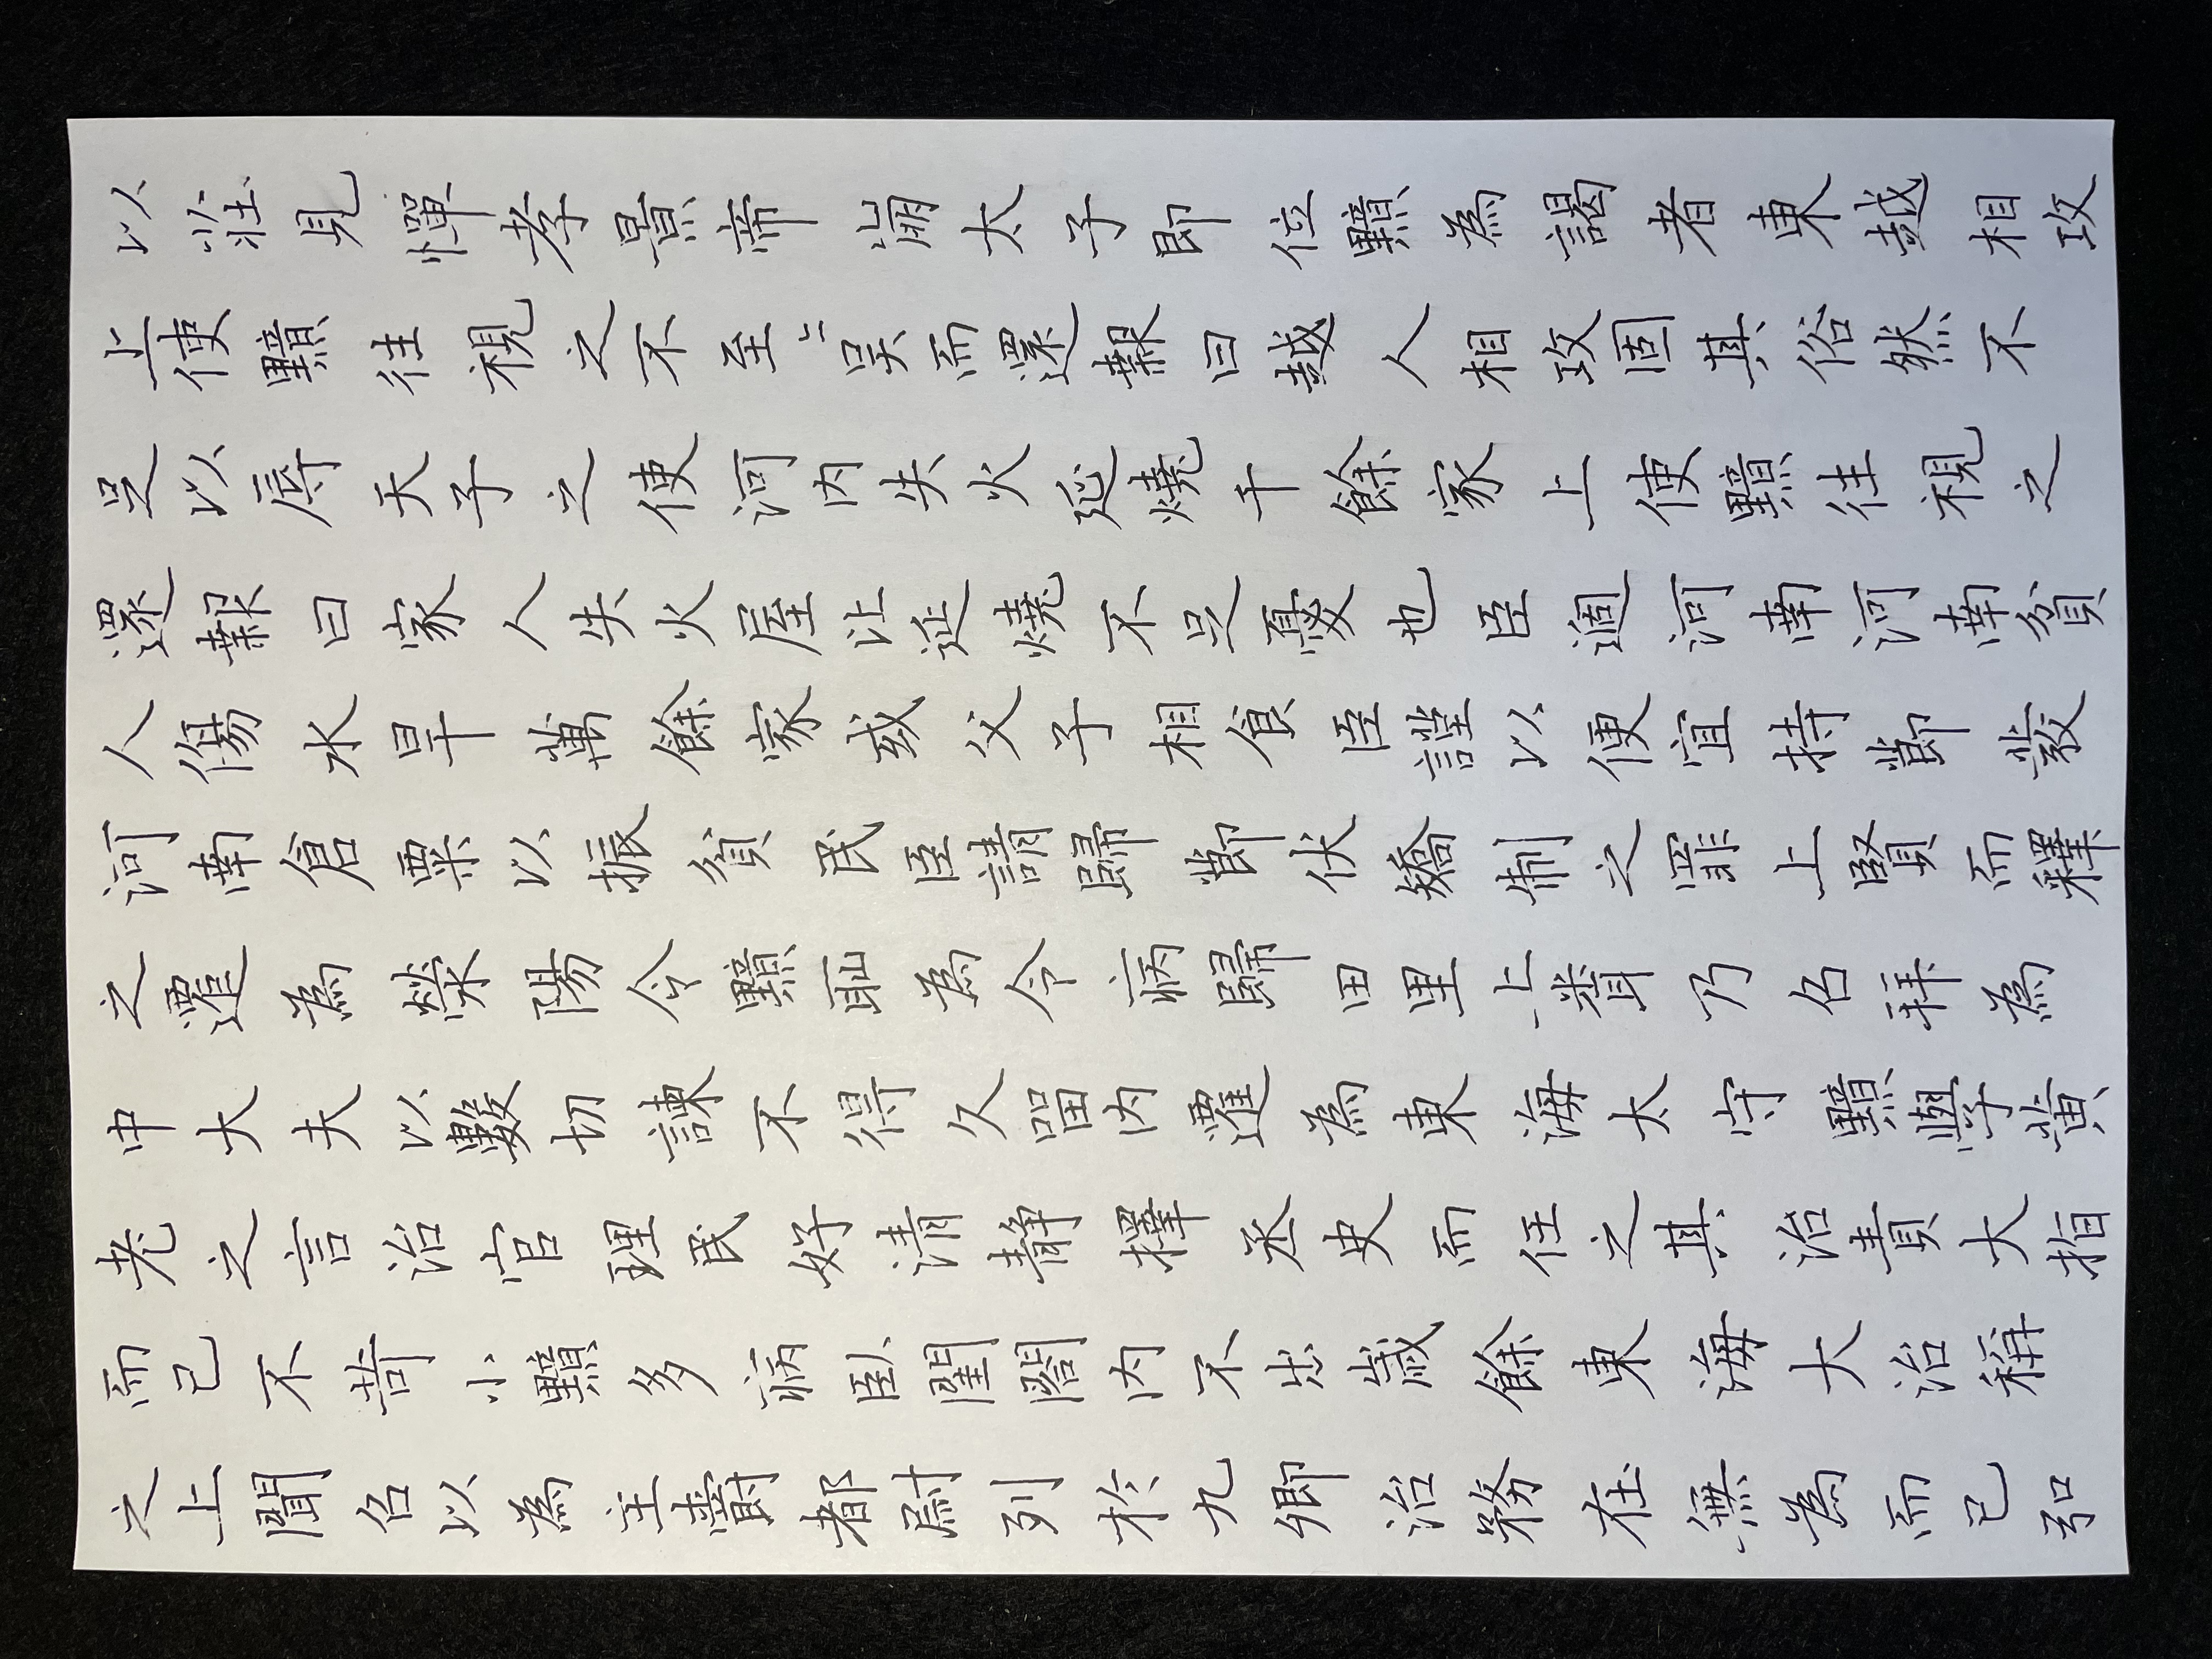 以莊見憚孝景帝崩太子即位黯為謁者東越相攻
上使黯往視之不至〻吳而還報曰越人相攻固其俗然不
足以辱天子之使河內失火延燒千餘家上使黯往視之
還報曰家人失火屋比延燒不足憂也臣過河南河南貧
人傷水旱萬餘家或父子相食臣謹以便宜持節發
河南倉粟以振貧民臣請歸節伏矯制之罪上賢而釋
之遷為滎陽令黯恥為令病歸田里上聞乃召拜為
中大夫以數切諫不得久留內遷為東海太守黯學黃
老之言治官理民好清靜擇丞史而任之其治責大指
而已不苛小黯多病臥閨閤內不出歲餘東海大治稱
之上聞召以為主爵都尉列於九卿治務在無為而已弘